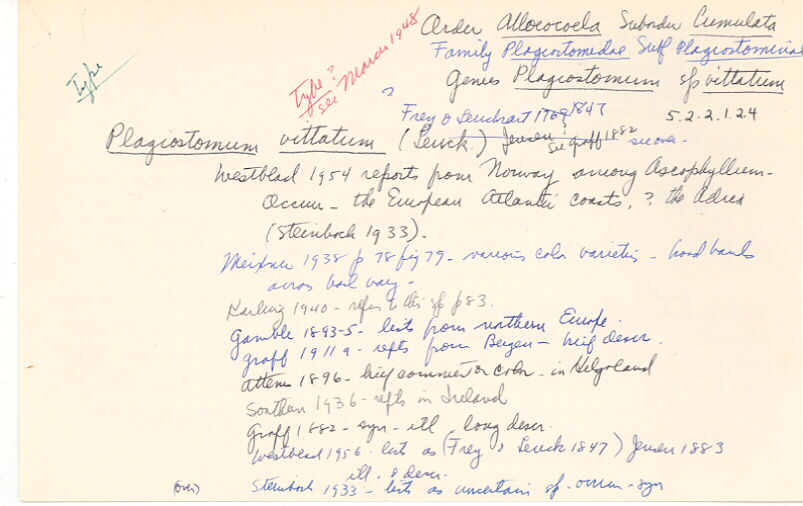 Order Allococoela Suborder Cumulata
Family Plagiostomidae Subf Plagiostominae
Genus Plagiostomum sp vittatum
Type
Type?
see Marcus 1948
?
Frey & Leuckart 1847
5.2.2.1.24
Plagiostomum vittatum (Leuck.) Jensen?
See Graff 1882 see over.
Westblad 1954 reports from Norway among Ascophyllum -
Occurr - the European Atlantic coasts, ? the Adria
(Steinböck 1933).
Meixner 1938 p 78 fig 79 - various color varieties - broad bands
across vary -
Karling 1940 - refers to this sp p 83.
Gamble 1893-5 - lists from northern Europe.
Graff 1911a - repts from Bergen - brief descr.
Attems 1896 - brief comment on color - in Helgoland
Southern 1936 - repts in Ireland
Graff 1882 - syn - ill - long descr.
Westblad 1956 - lists as (Frey & Leuck 1847) Jensen 1883
ill. & descr.
(over) Steinböck 1933 - lists as uncertain sp - occurr - syn